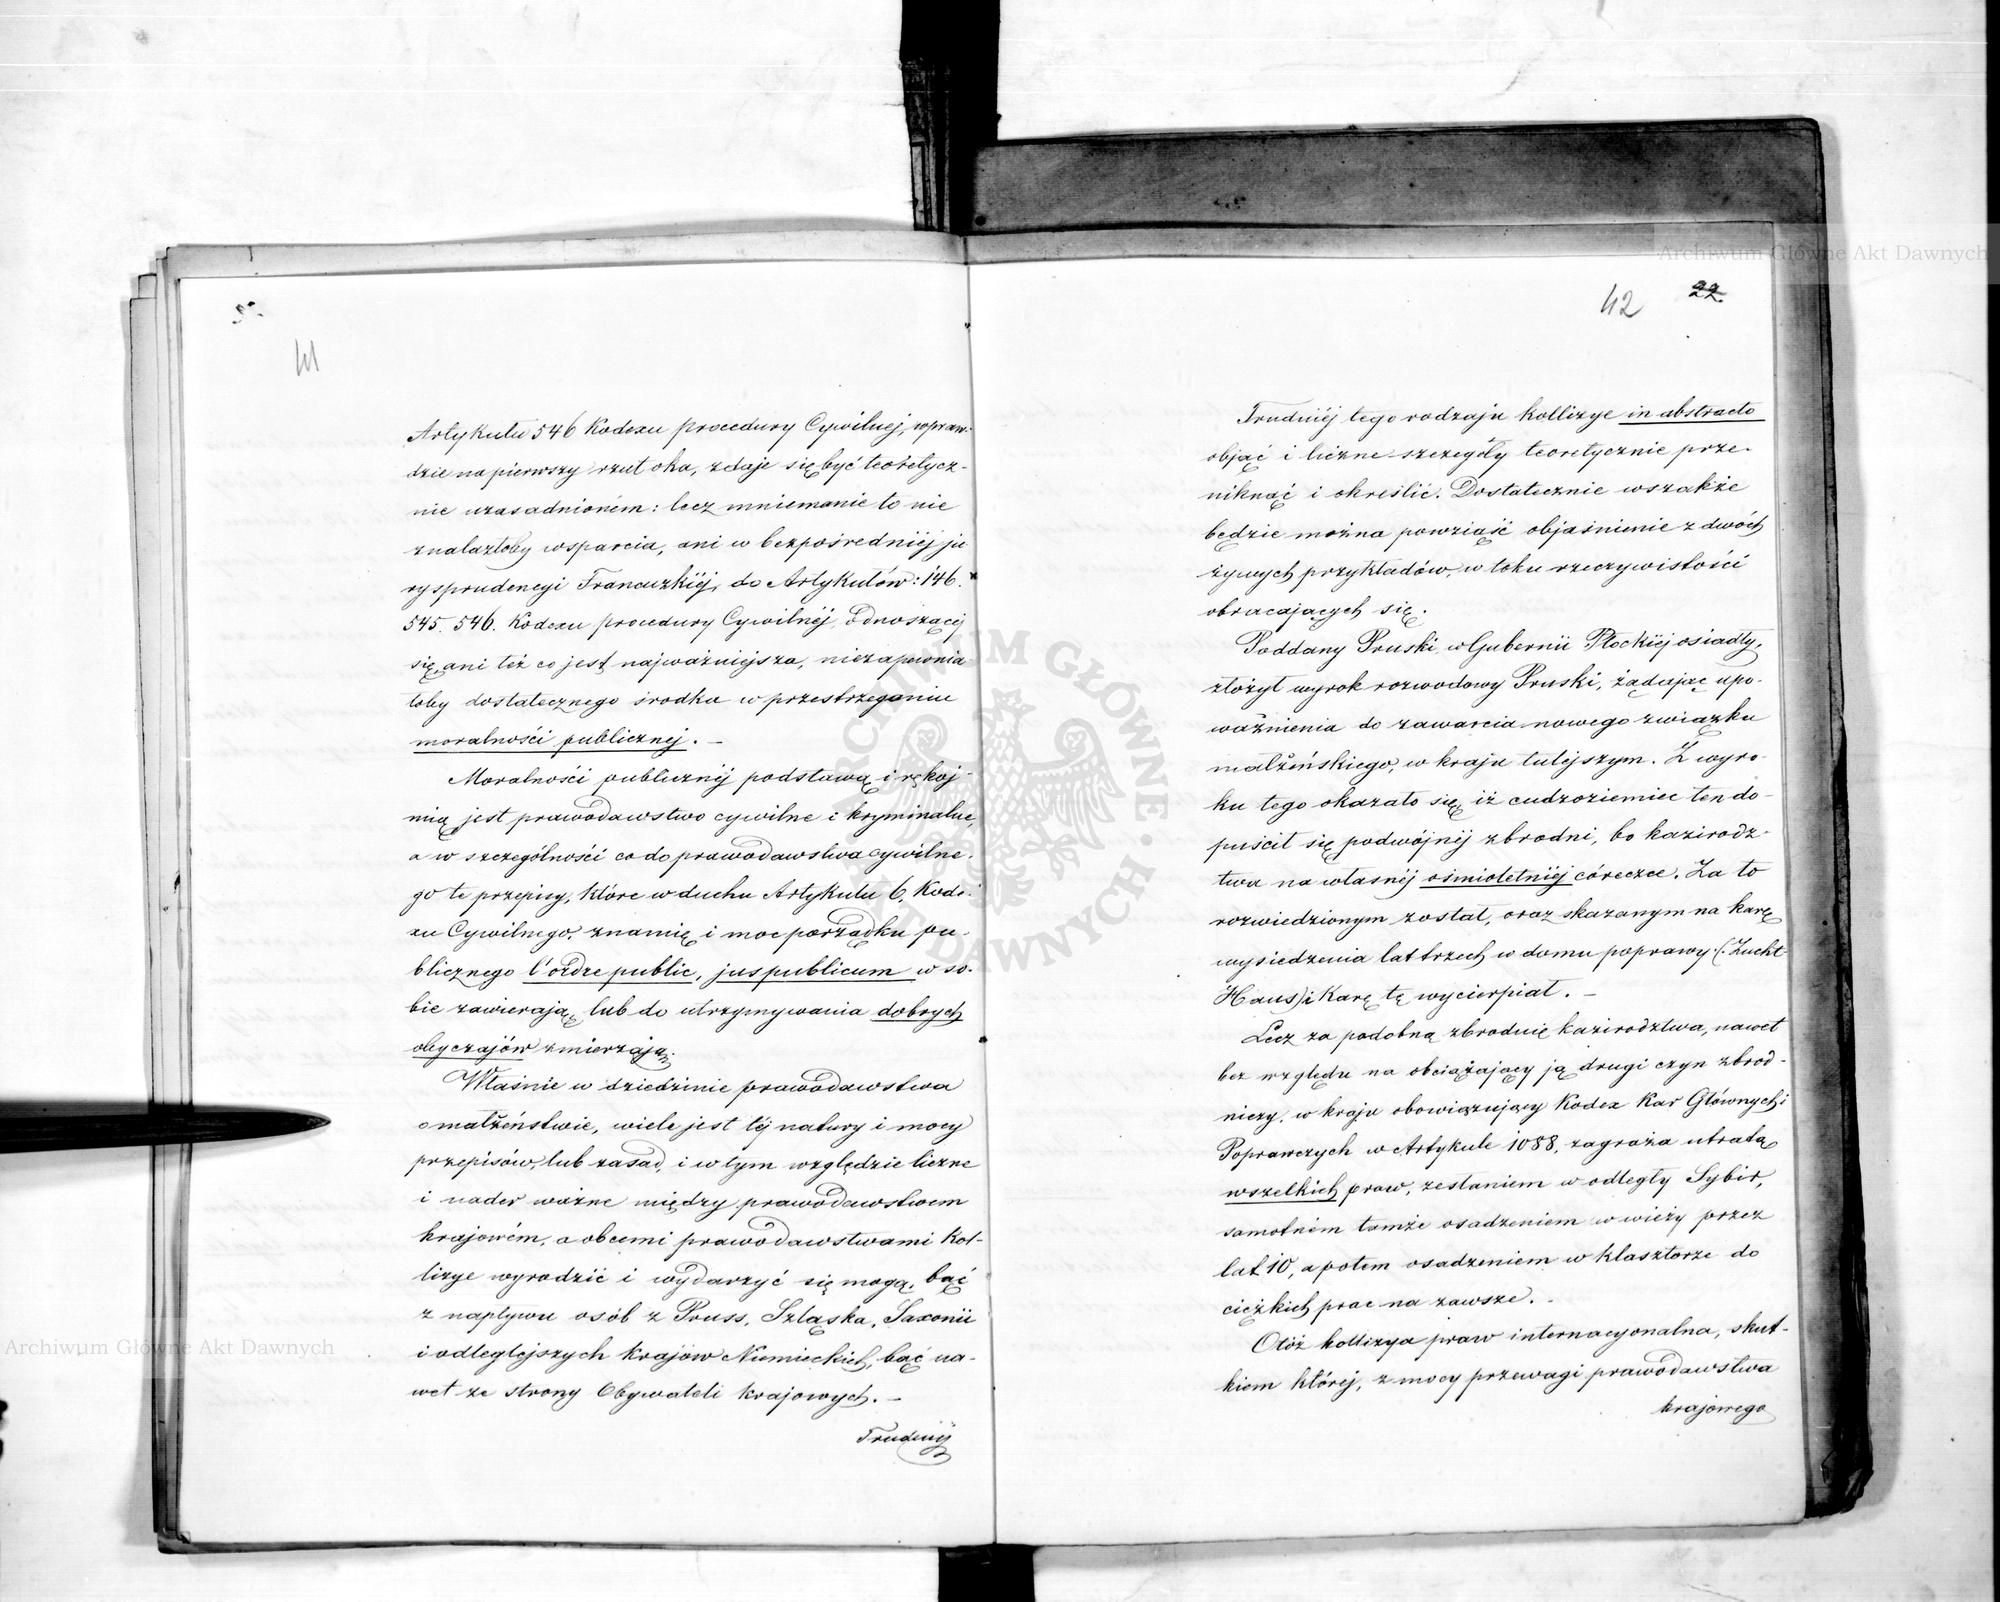 41
Artykułu 546 Kodexu procedury Cywilnej, wpraw-
dzie na pierwszy rzut oka, zdaje się być teoretycz-
nie uzasadnioném: lecz mniemanie to nie
znalazłoby wsparcia, ani w bezpośredniéj ju
rysprudencyi Francuzkiéj, do Artykułów: 146.
545. 546. Kodexu procedury Cywilnéj, odnoszącéj
się, ani też co jest najważniejsza, niezapewnia
łoby dostatecznego środka w przestrzeganiu
moralności publicznej. —
Moralności publicznéj podstawą i rękoj-
mią jest prawodawstwo cywilne i kryminalne,
a w szczególności co do prawodawstwa cywilne-
go te przepisy, które w duchu Artykułu 6. Kode-
xu Cywilnego, znamię i moc porządku pu-
blicznego l'ordre public, jus publicum w so-
bie zawierają, lub do utrzymywania dobrych
obyczajów zmierzają.
Właśnie w dziedzinie prawodawstwa
o małżeństwie, wiele jest téj natury i mocy
przepisów, lub zasad, i w tym względzie liczne
i nader ważne między prawodawstwem
krajowém, a obcemi prawodawstwami kol-
lizye wyrodzić i wydarzyć się mogą, bąć
z napływu osób z Pruss, Szląska, Saxonii
i odleglejszych krajów Niemieckich, bąć na-
wet ze strony Obywateli krajowych. —
Trudniéj
42 22.
Trudniéj tego rodzaju kollizye in abstracto
objąć i liczne szczegóły teoretycznie prze-
niknąć i określić. Dostatecznie wszakże
będzie można powziąść objaśnienie z dwóch
żywych przykładów, w toku rzeczywistości
obracających się.
Poddany Pruski, w Gubernii Płockiéj osiadły,
złożył wyrok rozwodowy Pruski, żądając upo-
ważnienia do zawarcia nowego związku
małżeńskiego, w kraju tutejszym. Z wyro-
ku tego okazało się, iż cudzoziemiec ten do-
puścił się podwójnéj zbrodni, bo kazirodz-
twa na własnéj ośmioletniéj córeczce. Za to
rozwiedzionym został, oraz skazanym na karę
wysiedzenia lat trzech w domu poprawy (: Zucht-
Haus) i karę tę wycierpiał. —
Lecz za podobną zbrodnię kazirodztwa, nawet
bez względu na obciążający ją drugi czyn zbrod-
niczy, w kraju obowiązujący Kodex Kar Głównych i
Poprawczych w Artykule 1088, zagraża utratą
wszelkich praw, zesłaniem w odległy Sybir,
samotném tamże osadzeniem w wieży przez
lat 10, a potem osadzeniem w klasztorze do
ciężkich prac na zawsze. -
Otóż kollizya praw internacyonalna, skut-
kiem któréj, z mocy przewagi prawodawstwa
krajowego
Archiwum Główne Akt Dawnych
Archiwum Główne Akt Dawnych
ARCHIWUM GŁÓWNE AKT DAWNYCH